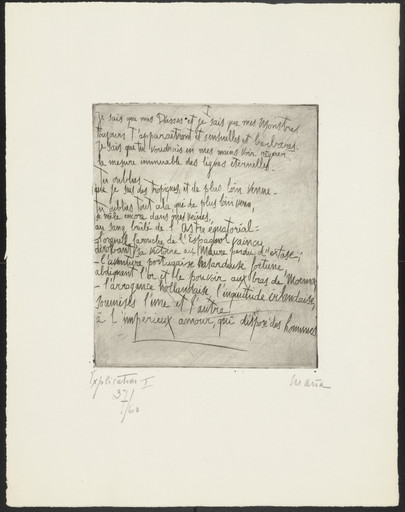 I
Je sais que mes Déesses et je sais que mes Monstres
toujours t'apparaîtront et sensuelles et barbares.
Je sais que tu voudrais en mes mains voir régner
la mesure immuable des lignes éternelles.
Tu oublies
que je suis des tropiques, et de plus loin venue.
Tu oublies tout cela, qui de plus loin
je mêle encore dans mes veines,
au sang brûlé de l'astre équatorial:
l'orgueil de l'Espagnol vaincu,
dérobant sa victoire aux Maures perdus d'extase;
- l'aventure portugaise hasardeuse fortune,
l'or et le pouvoir aux bras de
- l'arrogance hollandaise l'inquiétude irlandaise,
soumises l'une et l'autre
à l'impérieux amour, qui dispose des hommes
Explication I
37/
1/60
Maria